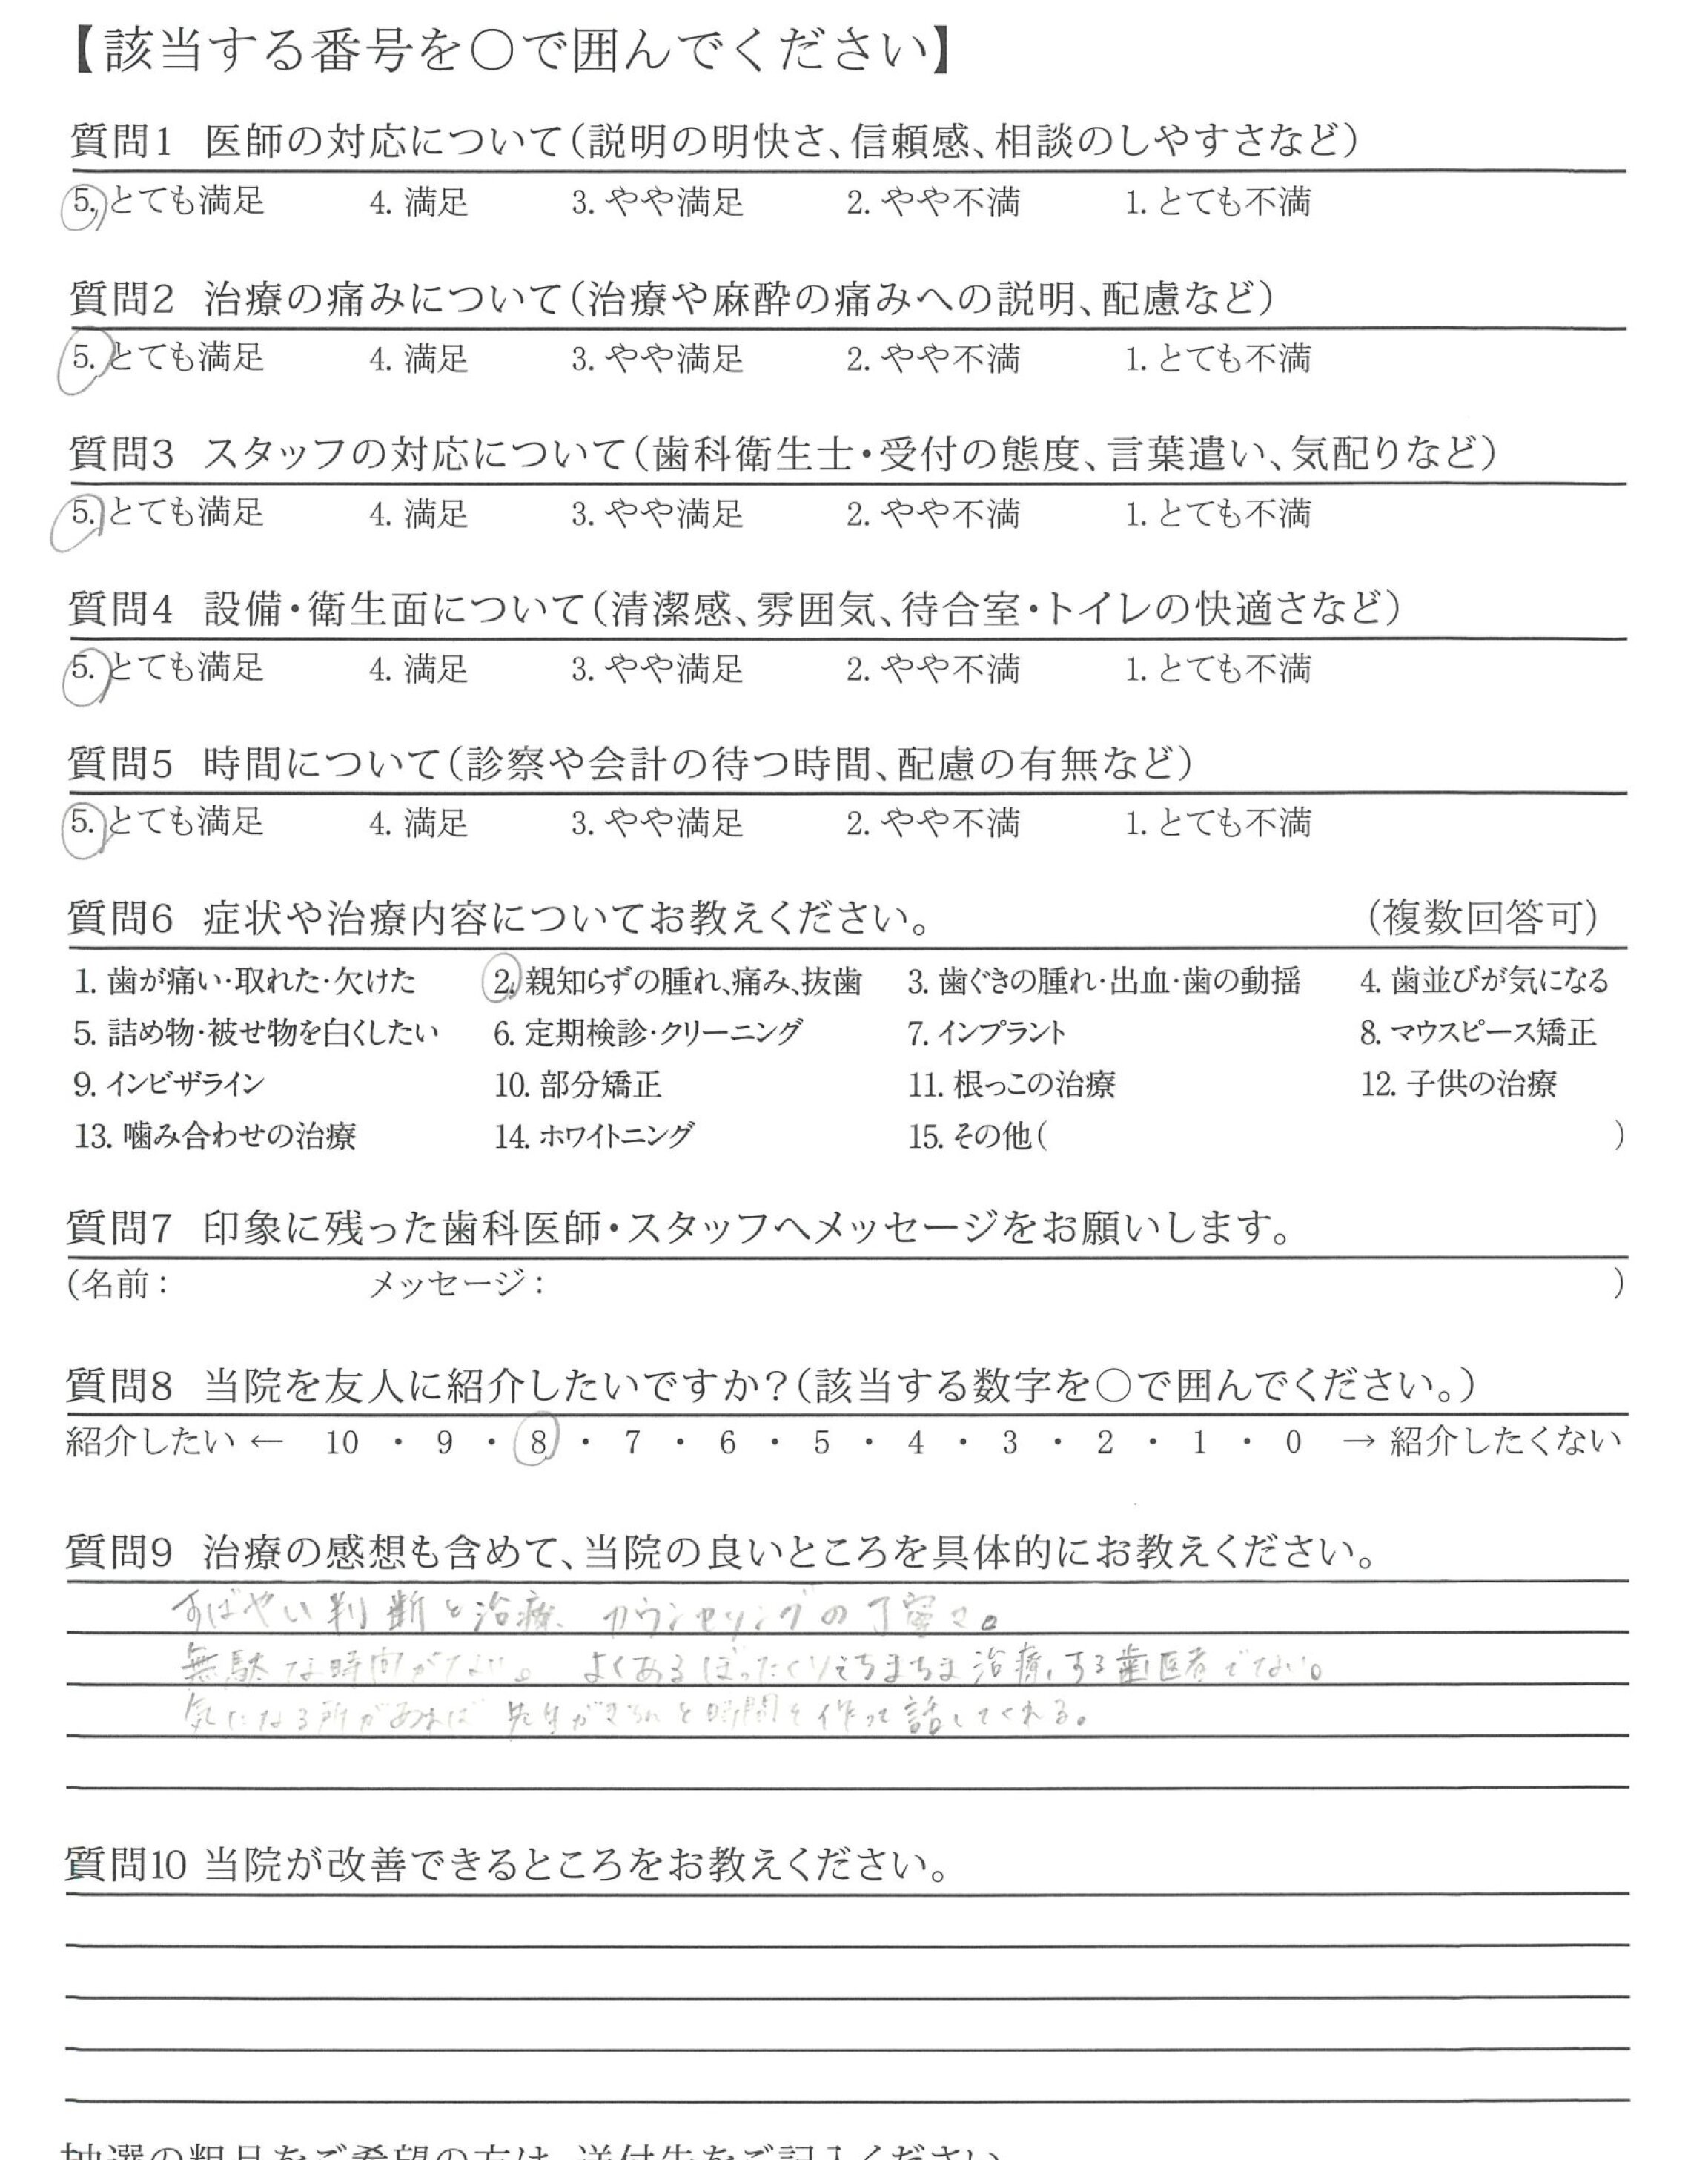 【該当する番号を○で囲んでください】
質問1 医師の対応について(説明の明快さ、信頼感、相談のしやすさなど)
5. とても満足 4. 満足 3. やや満足 2. やや不満 1. とても不満
質問2 治療の痛みについて(治療や麻酔の痛みへの説明、配慮など)
5. とても満足 4. 満足 3. やや満足 2. やや不満 1. とても不満
質問3 スタッフの対応について(歯科衛生士・受付の態度、言葉遣い、気配りなど)
5. とても満足 4. 満足 3. やや満足 2. やや不満 1. とても不満
質問4 設備・衛生面について(清潔感、雰囲気、待合室・トイレの快適さなど)
5. とても満足 4. 満足 3. やや満足 2. やや不満 1. とても不満
質問5 時間について(診察や会計の待つ時間、配慮の有無など)
5. とても満足 4. 満足 3. やや満足 2. やや不満 1. とても不満
質問6 症状や治療内容についてお教えください。 (複数回答可)
1. 歯が痛い・取れた・欠けた 2. 親知らずの腫れ、痛み、抜歯 3. 歯ぐきの腫れ・出血・歯の動揺 4. 歯並びが気になる
5. 詰め物・被せ物を白くしたい 6. 定期検診・クリーニング 7. インプラント 8. マウスピース矯正
9. インビザライン 10. 部分矯正 11. 根っこの治療 12. 子供の治療
13. 噛み合わせの治療 14. ホワイトニング 15. その他( )
質問7 印象に残った歯科医師・スタッフへメッセージをお願いします。
(名前: メッセージ: )
質問8 当院を友人に紹介したいですか?(該当する数字を○で囲んでください。)
紹介したい ← 10 ・ 9 ・ 8 ・ 7 ・ 6 ・ 5 ・ 4 ・ 3 ・ 2 ・ 1 ・ 0 → 紹介したくない
質問9 治療の感想も含めて、当院の良いところを具体的にお教えください。
すばやい判断と治療、カウンセリングの丁寧さ。
無駄な時間がない。 よくあるぼったくり ちまちま治療する歯医者でない。
気になる所があれば 先生がきちんと時間を作って話してくれる。
質問10 当院が改善できるところをお教えください。
抽選の粗品をご希望の方は、送付先をご記入ください